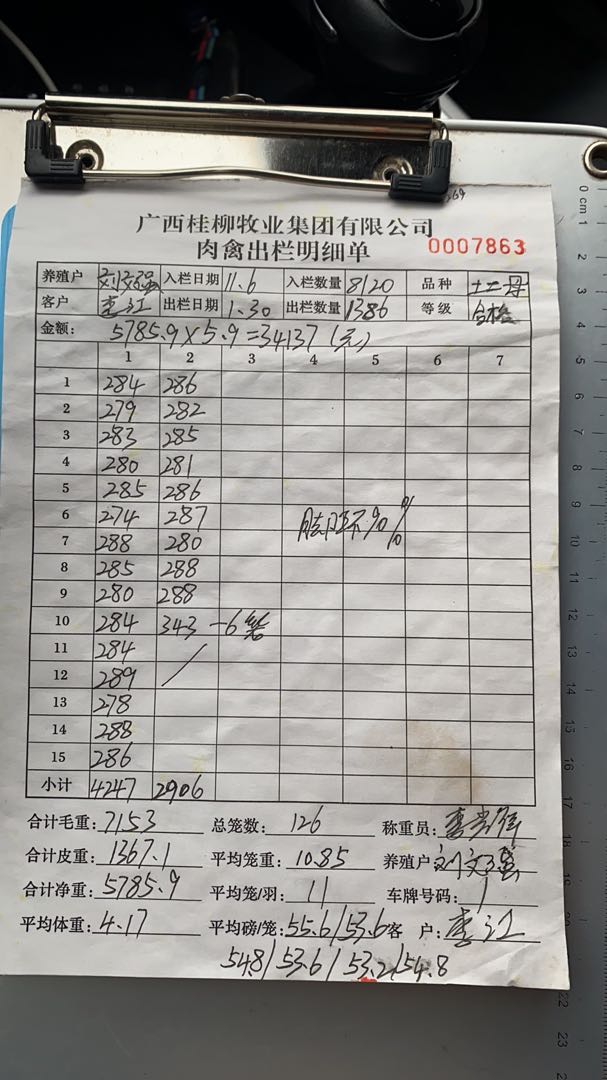 广西桂柳牧业集团有限公司
肉禽出栏明细单 0007863
养殖户 刘文强 入栏日期 11.6 入栏数量 8120 品种 土二号
客户 李江 出栏日期 1.30 出栏数量 1386 等级 合格
金额: 5785.9×5.9=34137(元)
1 2 3 4 5 6 7
1 284 286
2 279 282
3 283 285
4 280 281
5 285 286
6 274 287 90%
7 288 280
8 285 288
9 280 288
10 284 343 -6笼
11 284
12 289
13 278
14 288
15 286
小计 4247 2906
合计毛重: 7153 总笼数: 126 称重员:
合计皮重: 1367.1 平均笼重: 10.85 养殖户 刘文强
合计净重: 5785.9 平均笼/羽: 11 车牌号码: /
平均体重: 4.17 平均磅/笼: 55.6/53.6 客 户: 李江
54.8/53.6/53.2/54.8